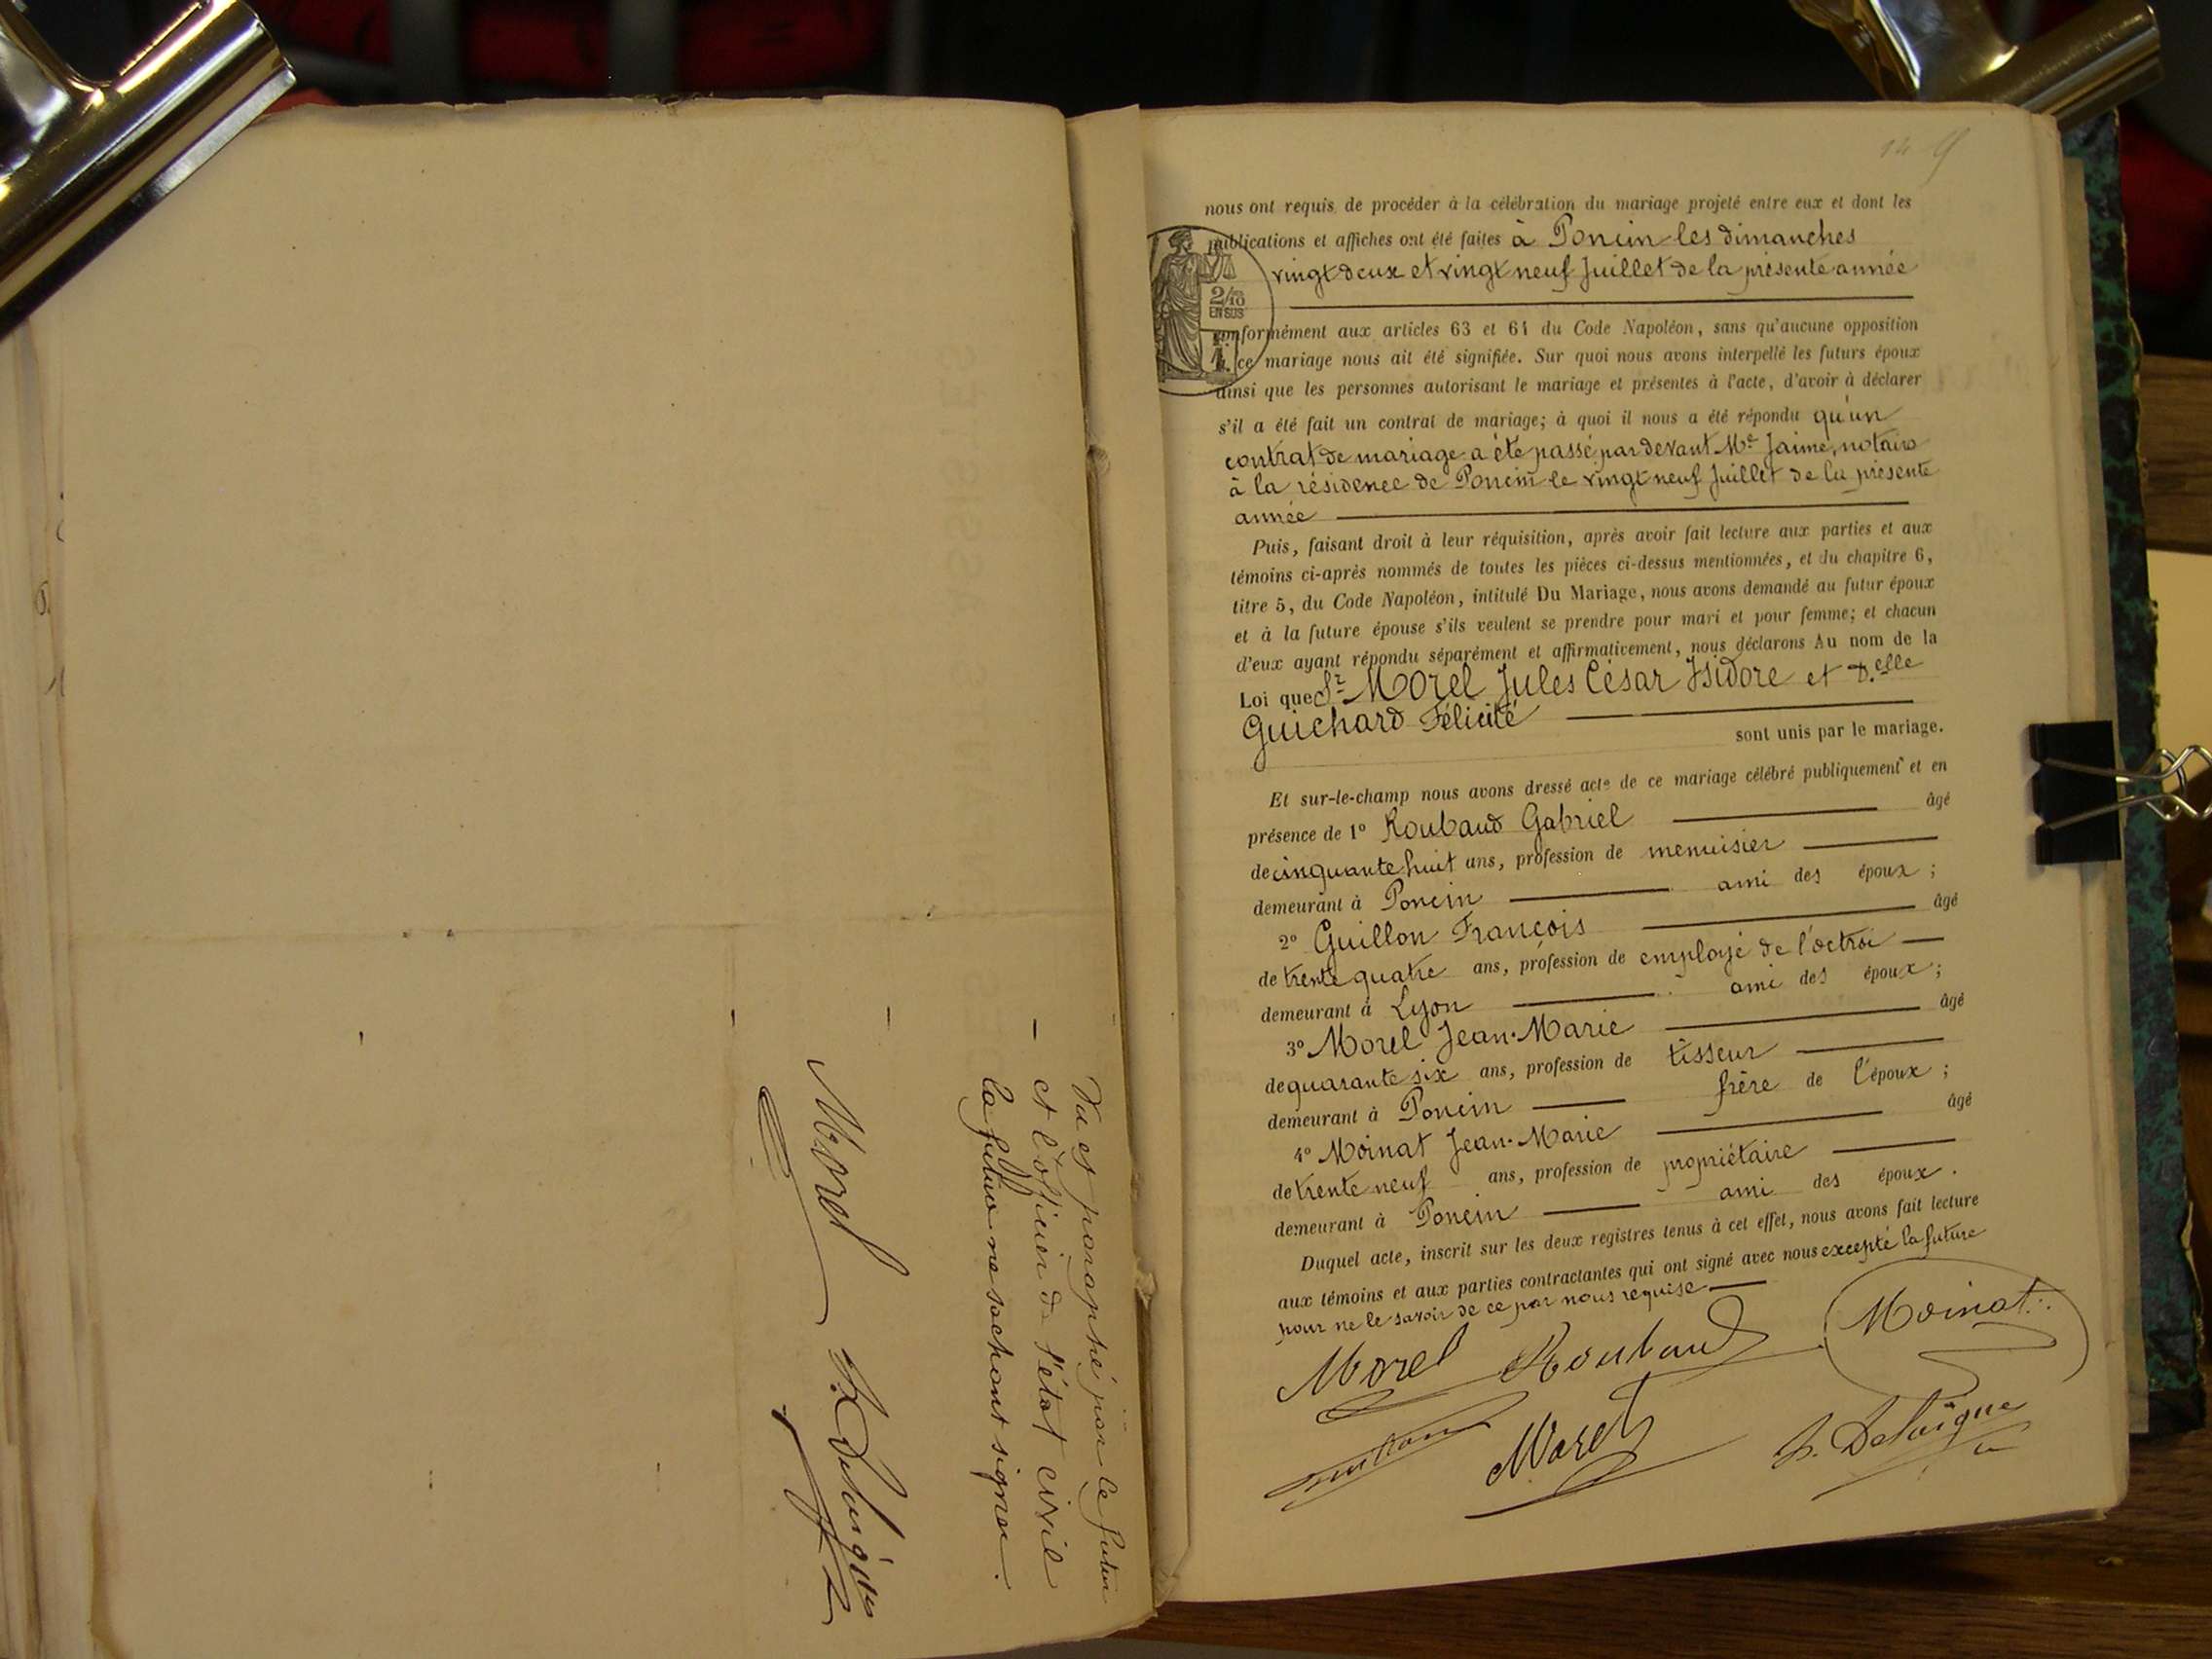 Vu et paraphé par le futur
et l'officier de l'état civil
la future ne sachant signer.
Morel
nous ont requis de procéder à la célébration du mariage projeté entre eux et dont les
publications et affiches ont été faites à Poncin les dimanches
vingt deux et vingt neuf Juillet de la présente année
2/10
EN SUS
conformément aux articles 63 et 64 du Code Napoléon, sans qu'aucune opposition
à ce mariage nous ait été signifiée. Sur quoi nous avons interpellé les futurs époux
ainsi que les personnes autorisant le mariage et présentes à l'acte, d'avoir à déclarer
s'il a été fait un contrat de mariage; à quoi il nous a été répondu qu'un
contrat de mariage a été passé par devant Me Jaime, notaire
à la résidence de Poncin le vingt neuf Juillet de la présente
année
Puis, faisant droit à leur réquisition, après avoir fait lecture aux parties et aux
témoins ci-après nommés de toutes les pièces ci-dessus mentionnées, et du chapitre 6,
titre 5, du Code Napoléon, intitulé Du Mariage, nous avons demandé au futur époux
et à la future épouse s'ils veulent se prendre pour mari et pour femme; et chacun
d'eux ayant répondu séparément et affirmativement, nous déclarons Au nom de la
Loi que Sr Morel Jules César Isidore et D.elle
Guichard Félicité
sont unis par le mariage.
Et sur-le-champ nous avons dressé acte de ce mariage célébré publiquement et en
présence de 1° Roubaud Gabriel âgé
de cinquante huit ans, profession de menuisier
demeurant à Poncin ami des époux;
2° Guillon François âgé
de trente quatre ans, profession de employé de l'octroi
demeurant à Lyon ami des époux;
3° Morel Jean-Marie âgé
de quarante six ans, profession de tisseur
demeurant à Poncin frère de l'époux;
4° Moinat Jean-Marie âgé
de trente neuf ans, profession de propriétaire
demeurant à Poncin ami des époux.
Duquel acte, inscrit sur les deux registres tenus à cet effet, nous avons fait lecture
aux témoins et aux parties contractantes qui ont signé avec nous excepté la future
pour ne le savoir de ce par nous requise
Morel Roubaud Moinat
Morel